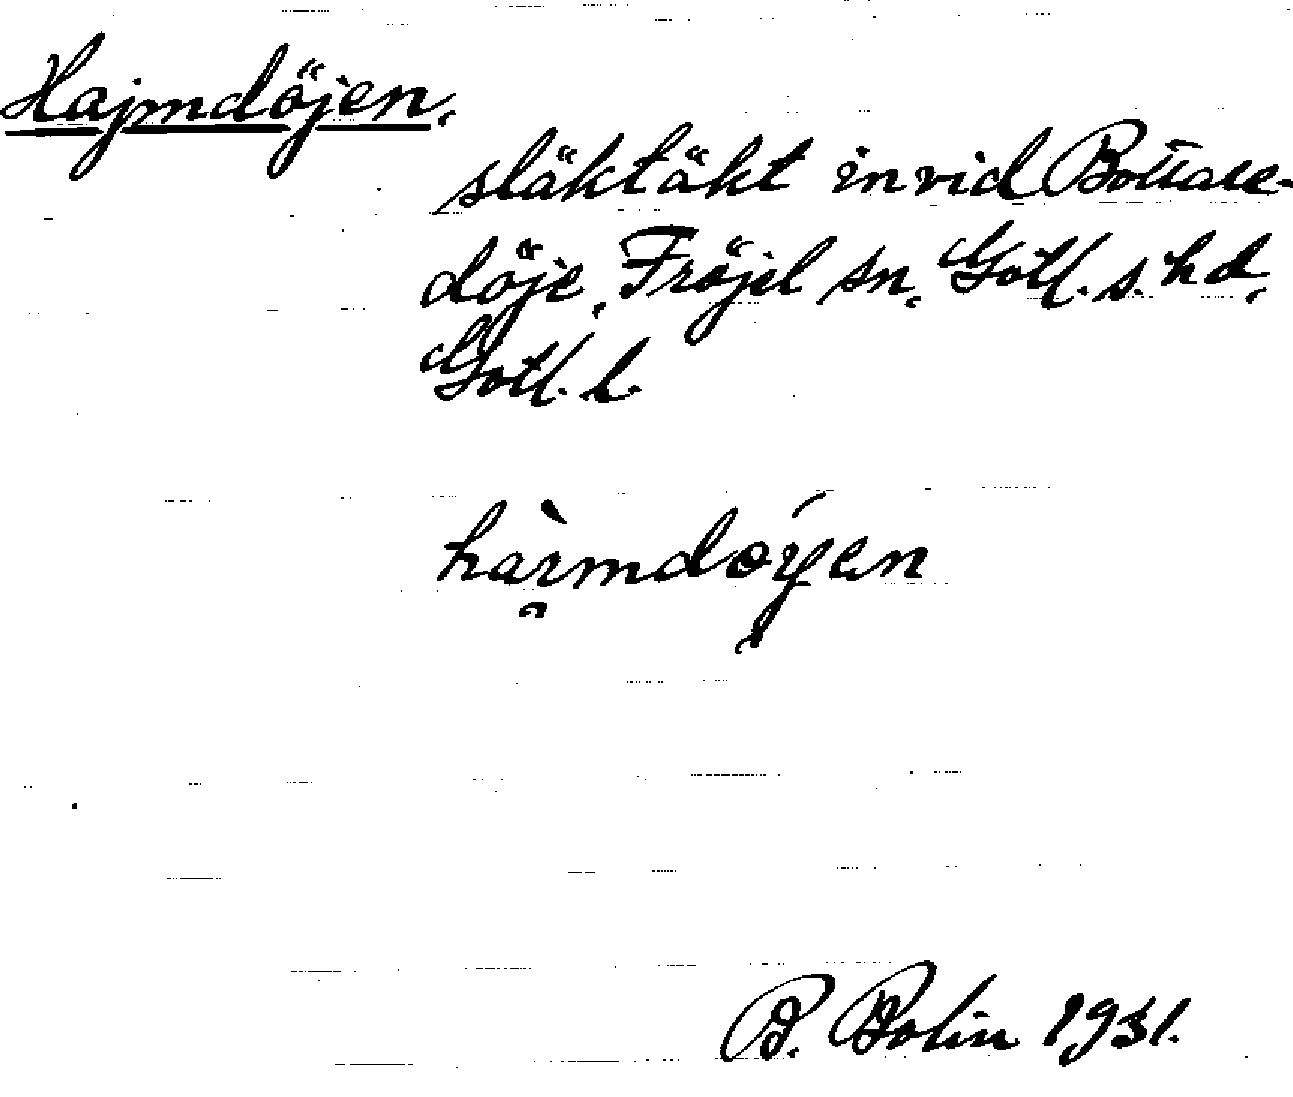 Hajmdöjen,
släktäkt invid Bottare-
döje, Fröjel sn, Gotl. s. hd,
Gotl. l.
B. Bolin 1931.